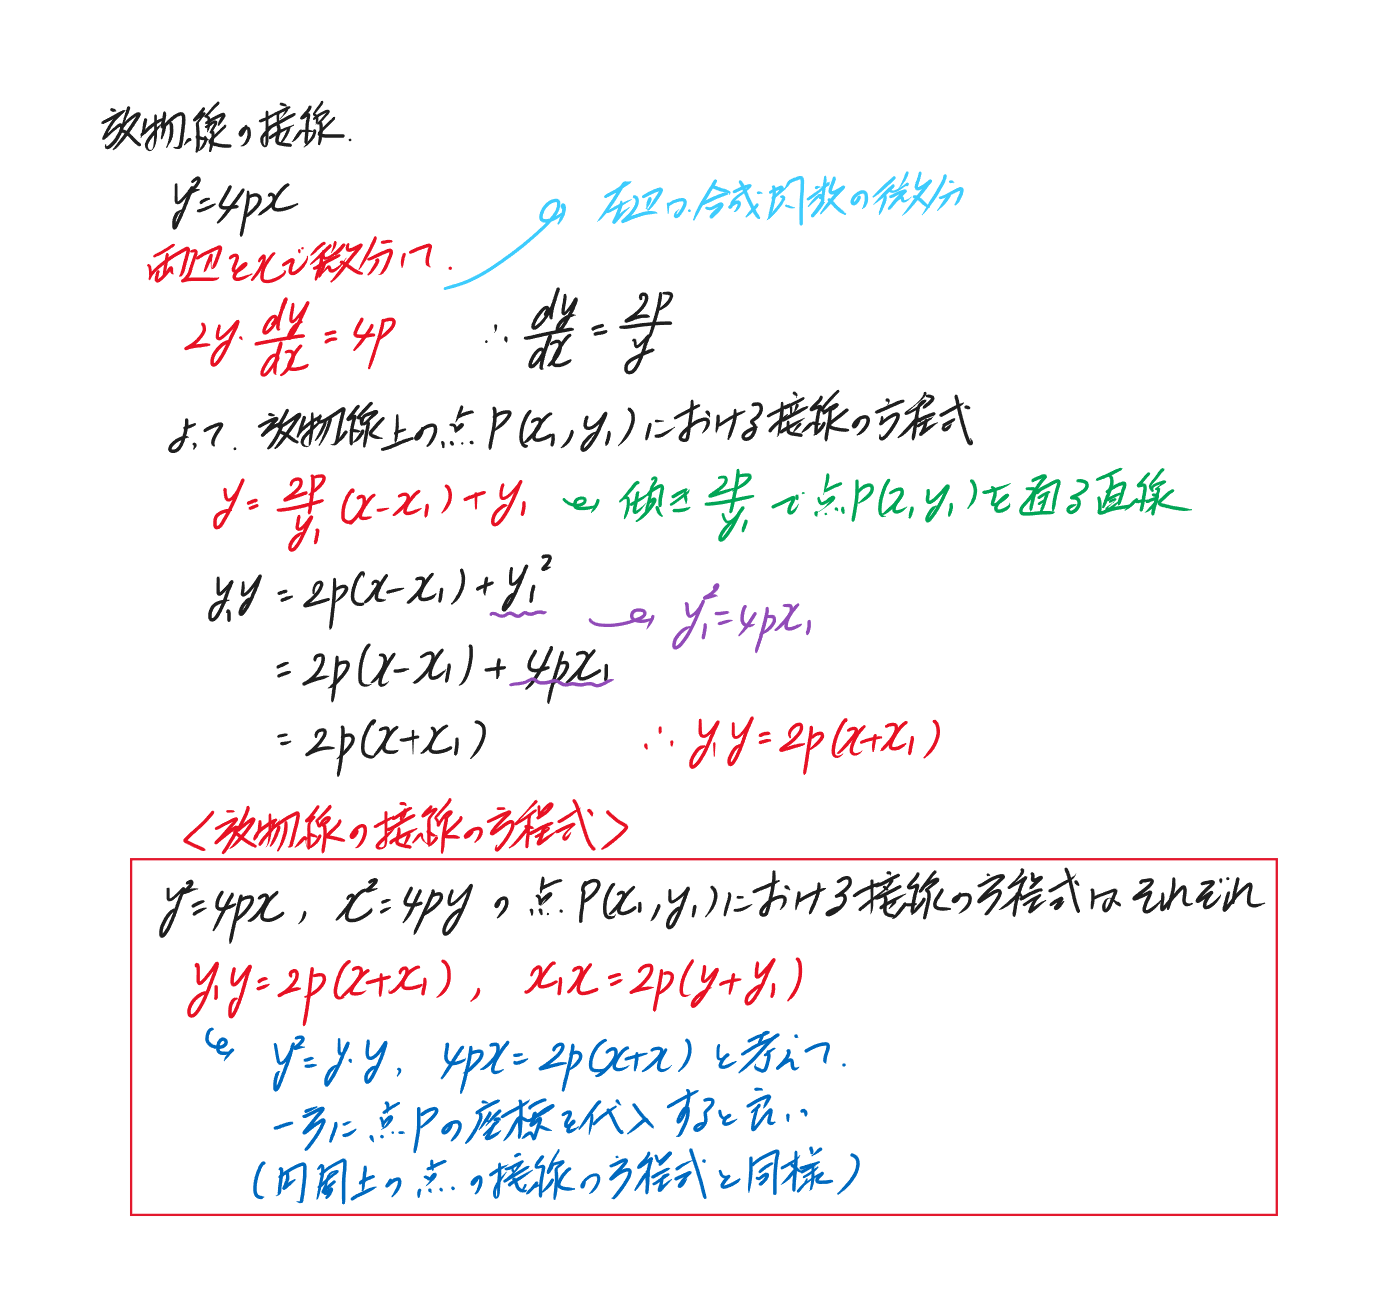 放物線の接線.
y²=4px
左辺は、合成関数の微分
両辺をxで微分して.
2y・dy/dx=4p ∴ dy/dx=2p/y
よって. 放物線上の点P(x₁,y₁)における接線の方程式
y=2p/y₁(x-x₁)+y₁ 傾き2p/y₁で点P(x₁,y₁)を通る直線
y₁y=2p(x-x₁)+y₁² y₁²=4px₁
=2p(x-x₁)+4px₁
=2p(x+x₁) ∴ y₁y=2p(x+x₁)
<放物線の接線の方程式>
y²=4px, x²=4pyの点P(x₁,y₁)における接線の方程式はそれぞれ
y₁y=2p(x+x₁), x₁x=2p(y+y₁)
y²=y・y, 4px=2p(x+x)と考えて.
一方に点Pの座標を代入すると良い
(円周上の点の接線の方程式と同様)